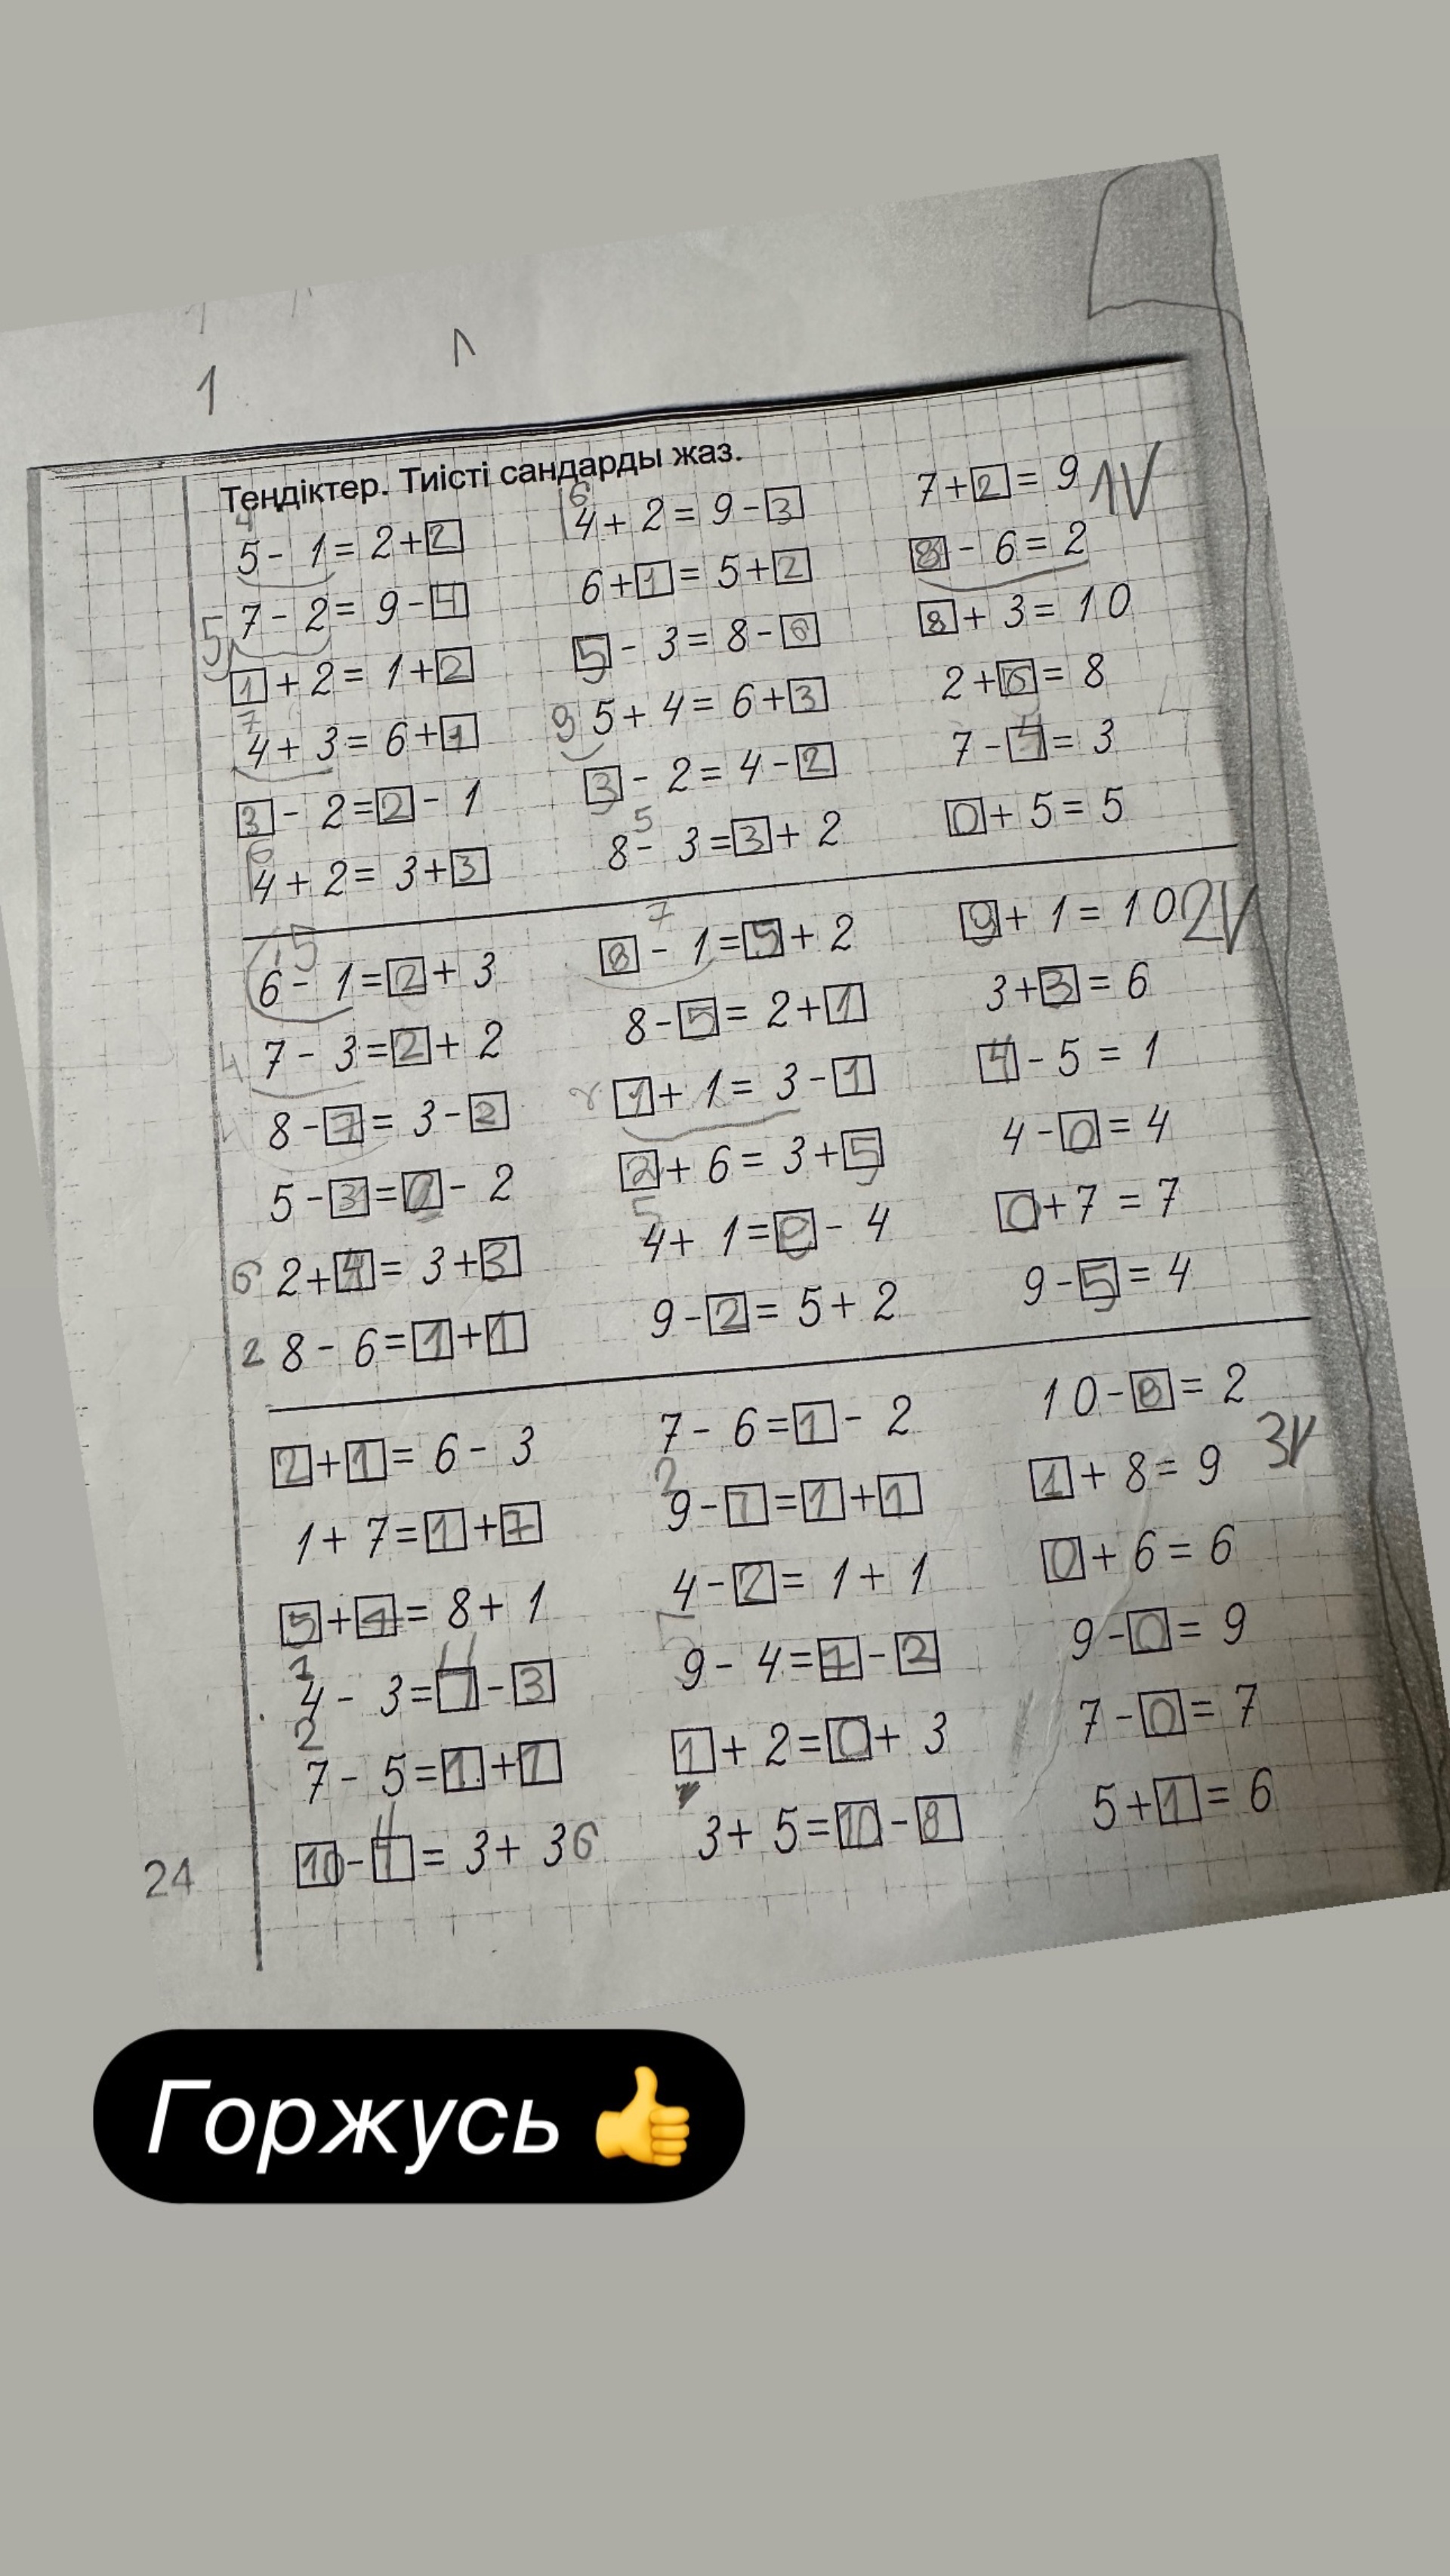 Теңдіктер. Тиісті сандарды жаз.
5 - 1 = 2 + 2 4 + 2 = 9 - 3 7 + 2 = 9 1V
7 - 2 = 9 - 4 6 + 1 = 5 + 2 8 - 6 = 2
1 + 2 = 1 + 2 5 - 3 = 8 - 6 8 + 3 = 10
4 + 3 = 6 + 1 5 + 4 = 6 + 3 2 + 6 = 8
3 - 2 = 2 - 1 3 - 2 = 4 - 2 7 - 4 = 3
4 + 2 = 3 + 3 8 - 3 = 3 + 2 0 + 5 = 5
6 - 1 = 2 + 3 8 - 1 = 5 + 2 9 + 1 = 10 2V
7 - 3 = 2 + 2 8 - 5 = 2 + 1 3 + 3 = 6
8 - 7 = 3 - 2 1 + 1 = 3 - 1 4 - 5 = 1
5 - 3 = - 2 2 + 6 = 3 + 5 4 - 0 = 4
6 2 + 4 = 3 + 3 4 + 1 = - 4 0 + 7 = 7
2 8 - 6 = 1 + 1 9 - 2 = 5 + 2 9 - 5 = 4
2 + 1 = 6 - 3 7 - 6 = 1 - 2 10 - 8 = 2 3V
1 + 7 = 1 + 7 9 - 7 = 1 + 1 1 + 8 = 9
5 + 4 = 8 + 1 4 - 2 = 1 + 1 0 + 6 = 6
4 - 3 = - 3 9 - 4 = 7 - 2 9 - 0 = 9
7 - 5 = 1 + 1 1 + 2 = 0 + 3 7 - 0 = 7
10 - = 3 + 3 6 3 + 5 = 10 - 8 5 + 1 = 6
24
Горжусь 👍